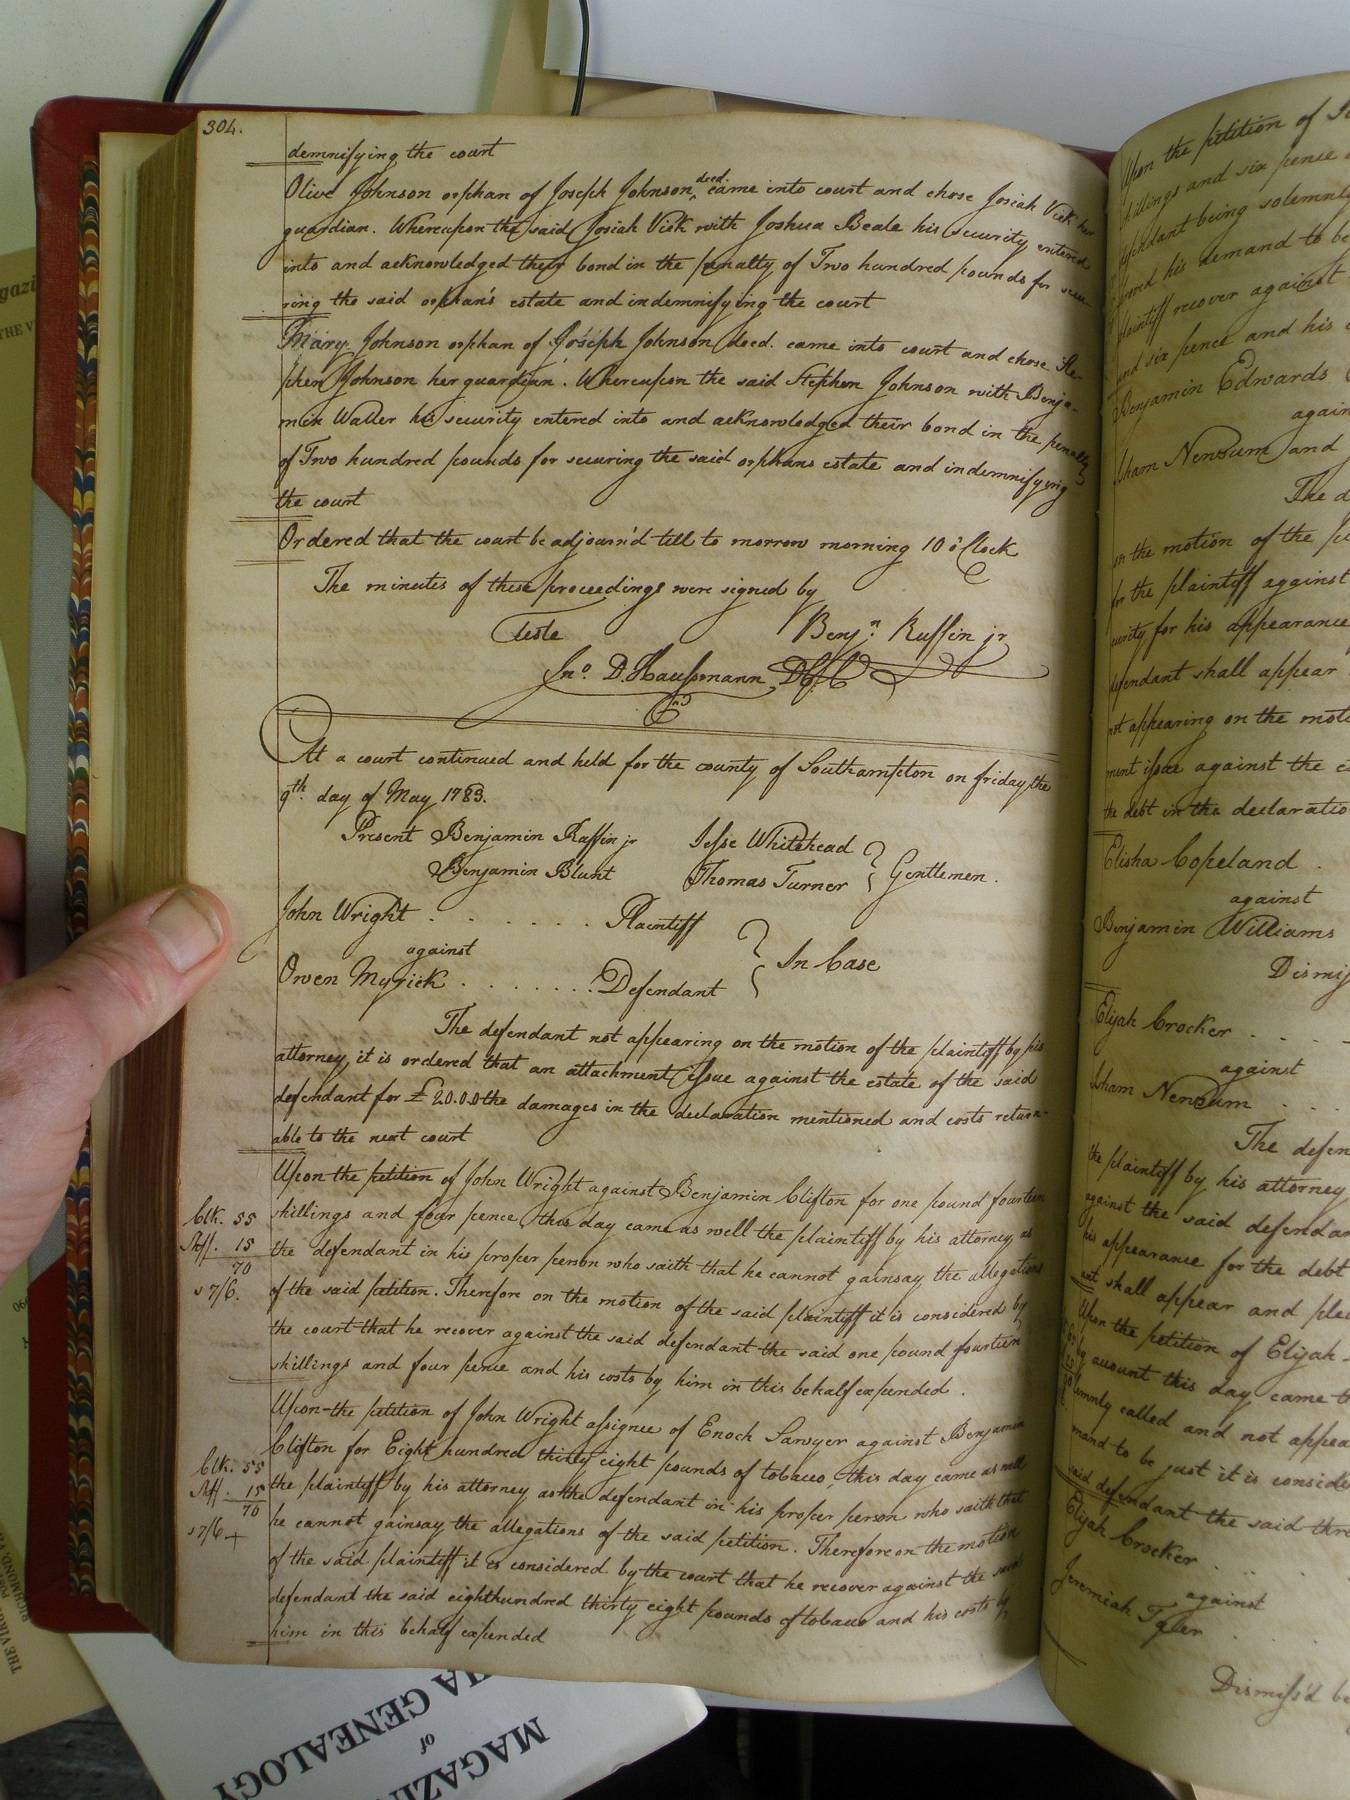 304.
demnifying the court
Olive Johnson orphan of Joseph Johnson decd. came into court and chose Josiah Vick her
guardian. Whereupon the said Josiah Vick with Joshua Beale his security entered
into and acknowledged their bond in the penalty of Two hundred pounds for secu-
ring the said orphan's estate and indemnifying the court
Mary Johnson orphan of Joseph Johnson decd. came into court and chose Ste-
phen Johnson her guardian. Whereupon the said Stephen Johnson with Benja-
min Waller his security entered into and acknowledged their bond in the penalty
of Two hundred pounds for securing the said orphans estate and indemnifying
the court
Ordered that the court be adjourn'd till to morrow morning 10 o'Clock
The minutes of these proceedings were signed by
Teste Benjn. Ruffin jr
Jno. D. Haussmann D
At a court continued and held for the county of Southampton on friday the
9th. day of May 1783.
Present Benjamin Ruffin jr Jesse Whitehead
Benjamin Blunt Thomas Turner } Gentlemen.
John Wright . . . . . . Plaintiff
against } In Case
Owen Myrick . . . . . . . Defendant
The defendant not appearing on the motion of the plaintiff by his
attorney, it is ordered that an attachment issue against the estate of the said
defendant for £20.0.0 the damages in the declaration mentioned and costs return-
able to the next court
Upon the petition of John Wright against Benjamin Clifton for one pound fourteen
Clk. 55 shillings and four pence, this day came as well the plaintiff by his attorney as
Shff. 15 the defendant in his proper person who saith that he cannot gainsay the allegations
70
s7/6. of the said petition. Therefore on the motion of the said plaintiff it is considered by
the court that he recover against the said defendant the said one pound fourteen
shillings and four pence and his costs by him in this behalf expended.
Upon the petition of John Wright assignee of Enoch Sawyer against Benjamin
Clifton for Eight hundred thirty eight pounds of tobacco, this day came as well
Clk. 55 the plaintiff by his attorney as the defendant in his proper person who saith that
Shff. 15
70 he cannot gainsay the allegations of the said petition. Therefore on the motion
s7/6 + of the said plaintiff it is considered by the court that he recover against the said
defendant the said eighthundred thirty eight pounds of tobacco and his costs by
him in this behalf expended
Upon the petition of
shillings and six pence
defendant being solemnly
his demand to be
plaintiff recover against
and six pence and his
Benjamin Edwards
again
Isham Newsum and
The d
on the motion of the
for the plaintiff against
curity for his appearance
defendant shall appear
not appearing on the moti
ment issue against the
the debt in the declaratio
Elisha Copeland .
against
Benjamin Williams
Dismis
Elijah Crocker . . .
against
Isham Newsum . . .
The defen
the plaintiff by his attorney
against the said defendan
his appearance for the debt
shall appear and plea
Upon the petition of Elijah
by account this day came
lemnly called and not appea
mand to be just it is conside
said defendant the said thre
Elijah Crocker . .
against
Jeremiah Tyler .
Dismiss'd be
MAGAZIN
of
IA GENEALOGY